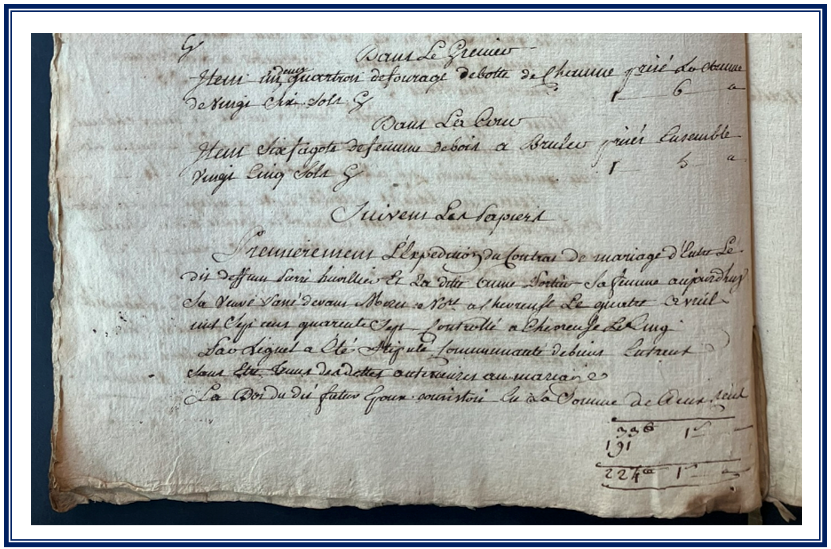 Dans Le Grenier
Item un deux quartron de fourage de botte de Chemme prisé La somme
de Vingt Six Sols 1 6 "
Dans La Cour
Item Six fagots de femme de bois a Bruler prisés Ensemble
Vingt Cinq Sols 1 5 "
Suivent Les Papiers
Premierement L'Expedition du Contrat de mariage d'Entre Le
dit deffunt et La dite anne sa femme aujourdhuy
Sa Veuve devant Nore. a chevreuse Le quatre avril
mil Sept cent quarente Sept Controllé a Chevreuse Le Cinq
Par Lequel a Été Stipulé Communauté de biens Entreux
Sans Etre tenus des dettes anterieures au mariage
La Dot du dit futur Epoux consistoit En La Somme de deux cent
336 1
191
224 1